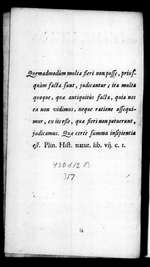 Quemadmodùm multa fieri non posse, prius-
quàm facta sunt, judicantur; ita multa
quoque, quæ antiquitùs facta, quia nos
ea non vidimus, neque ratione assequi-
mur, ex iis esse, quæ fieri non potuerunt,
judicamus. Quæ certè summa insipientia
est. Plin. Hist. natur. lib. vij. c. 1.